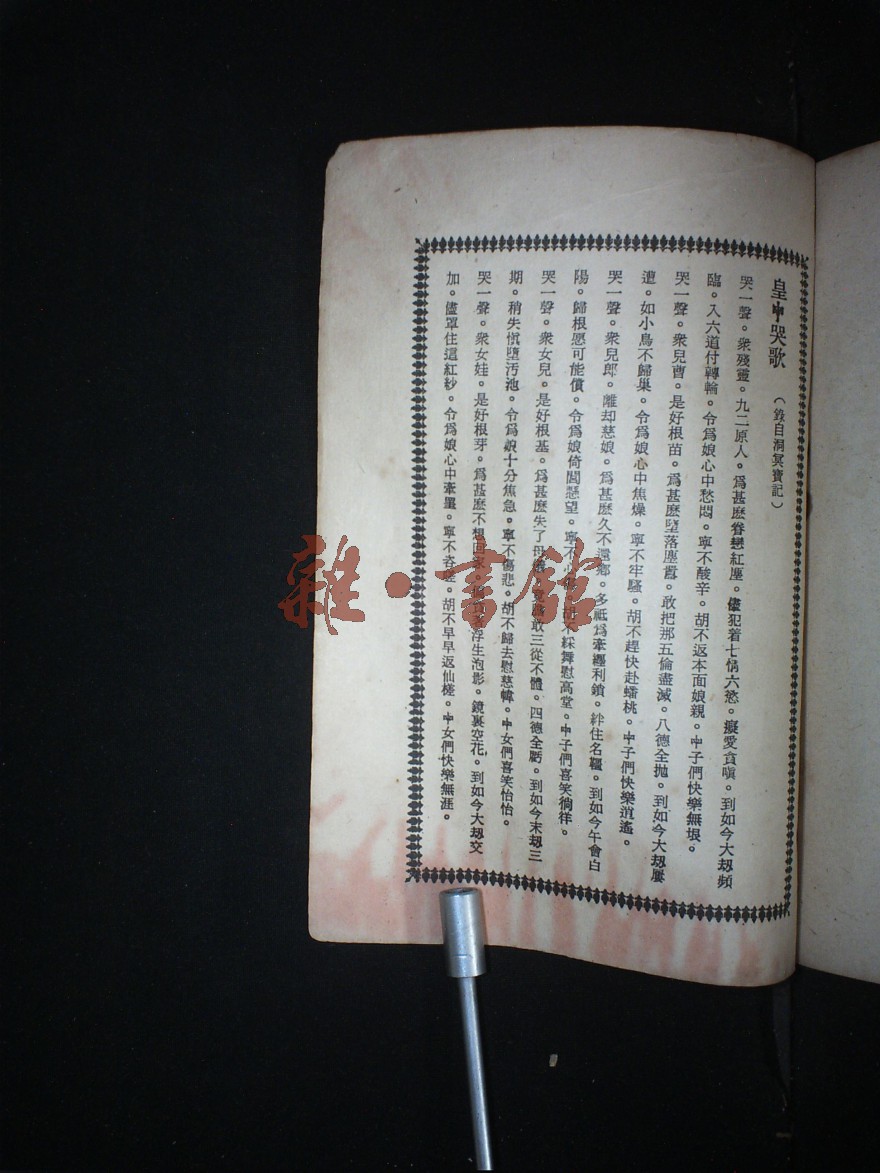 皇𠂩哭歌
（錄自洞冥寶記）
哭一聲。衆殘靈。九二原人。爲甚麽眷戀紅塵。儘犯着七情六慾。癡愛貪嗔。到如今大刼頻
臨。入六道付轉輪。令爲娘心中愁悶。寧不酸辛。胡不返本面娘親。𠂩子們快樂無垠。
哭一聲。衆兒曹。是好根苗。爲甚麽墮落塵囂。敢把那五倫盡滅。八德全拋。到如今大刼屢
遭。如小鳥不歸巢。令爲娘心中焦燥。寧不牢騷。胡不趕快赴蟠桃。𠂩子們快樂逍遙。
哭一聲。衆兒郎。離却慈娘。爲甚麽久不還鄉。多祗爲牽纏利鎖。絆住名韁。到如今午會白
陽。歸根愿可能償。令爲娘倚閭懸望。寧不心。胡不綵舞慰高堂。𠂩子們喜笑徜徉。
哭一聲。衆女兒。是好根基。爲甚麽失了母。敢三從不體。四德全虧。到如今末刼三
期。稍失愼墮污池。令爲娘十分焦急。寧不傷悲。胡不歸去慰慈幃。𠂩女們喜笑怡怡。
哭一聲。衆女娃。是好根芽。爲甚麽不想回家。浮生泡影。鏡裏空花。到如今大刼交
加。儘罩住這紅紗。令爲娘心中牽罣。寧不咨嗟。胡不早早返仙槎。𠂩女們快樂無涯。
雜·書館